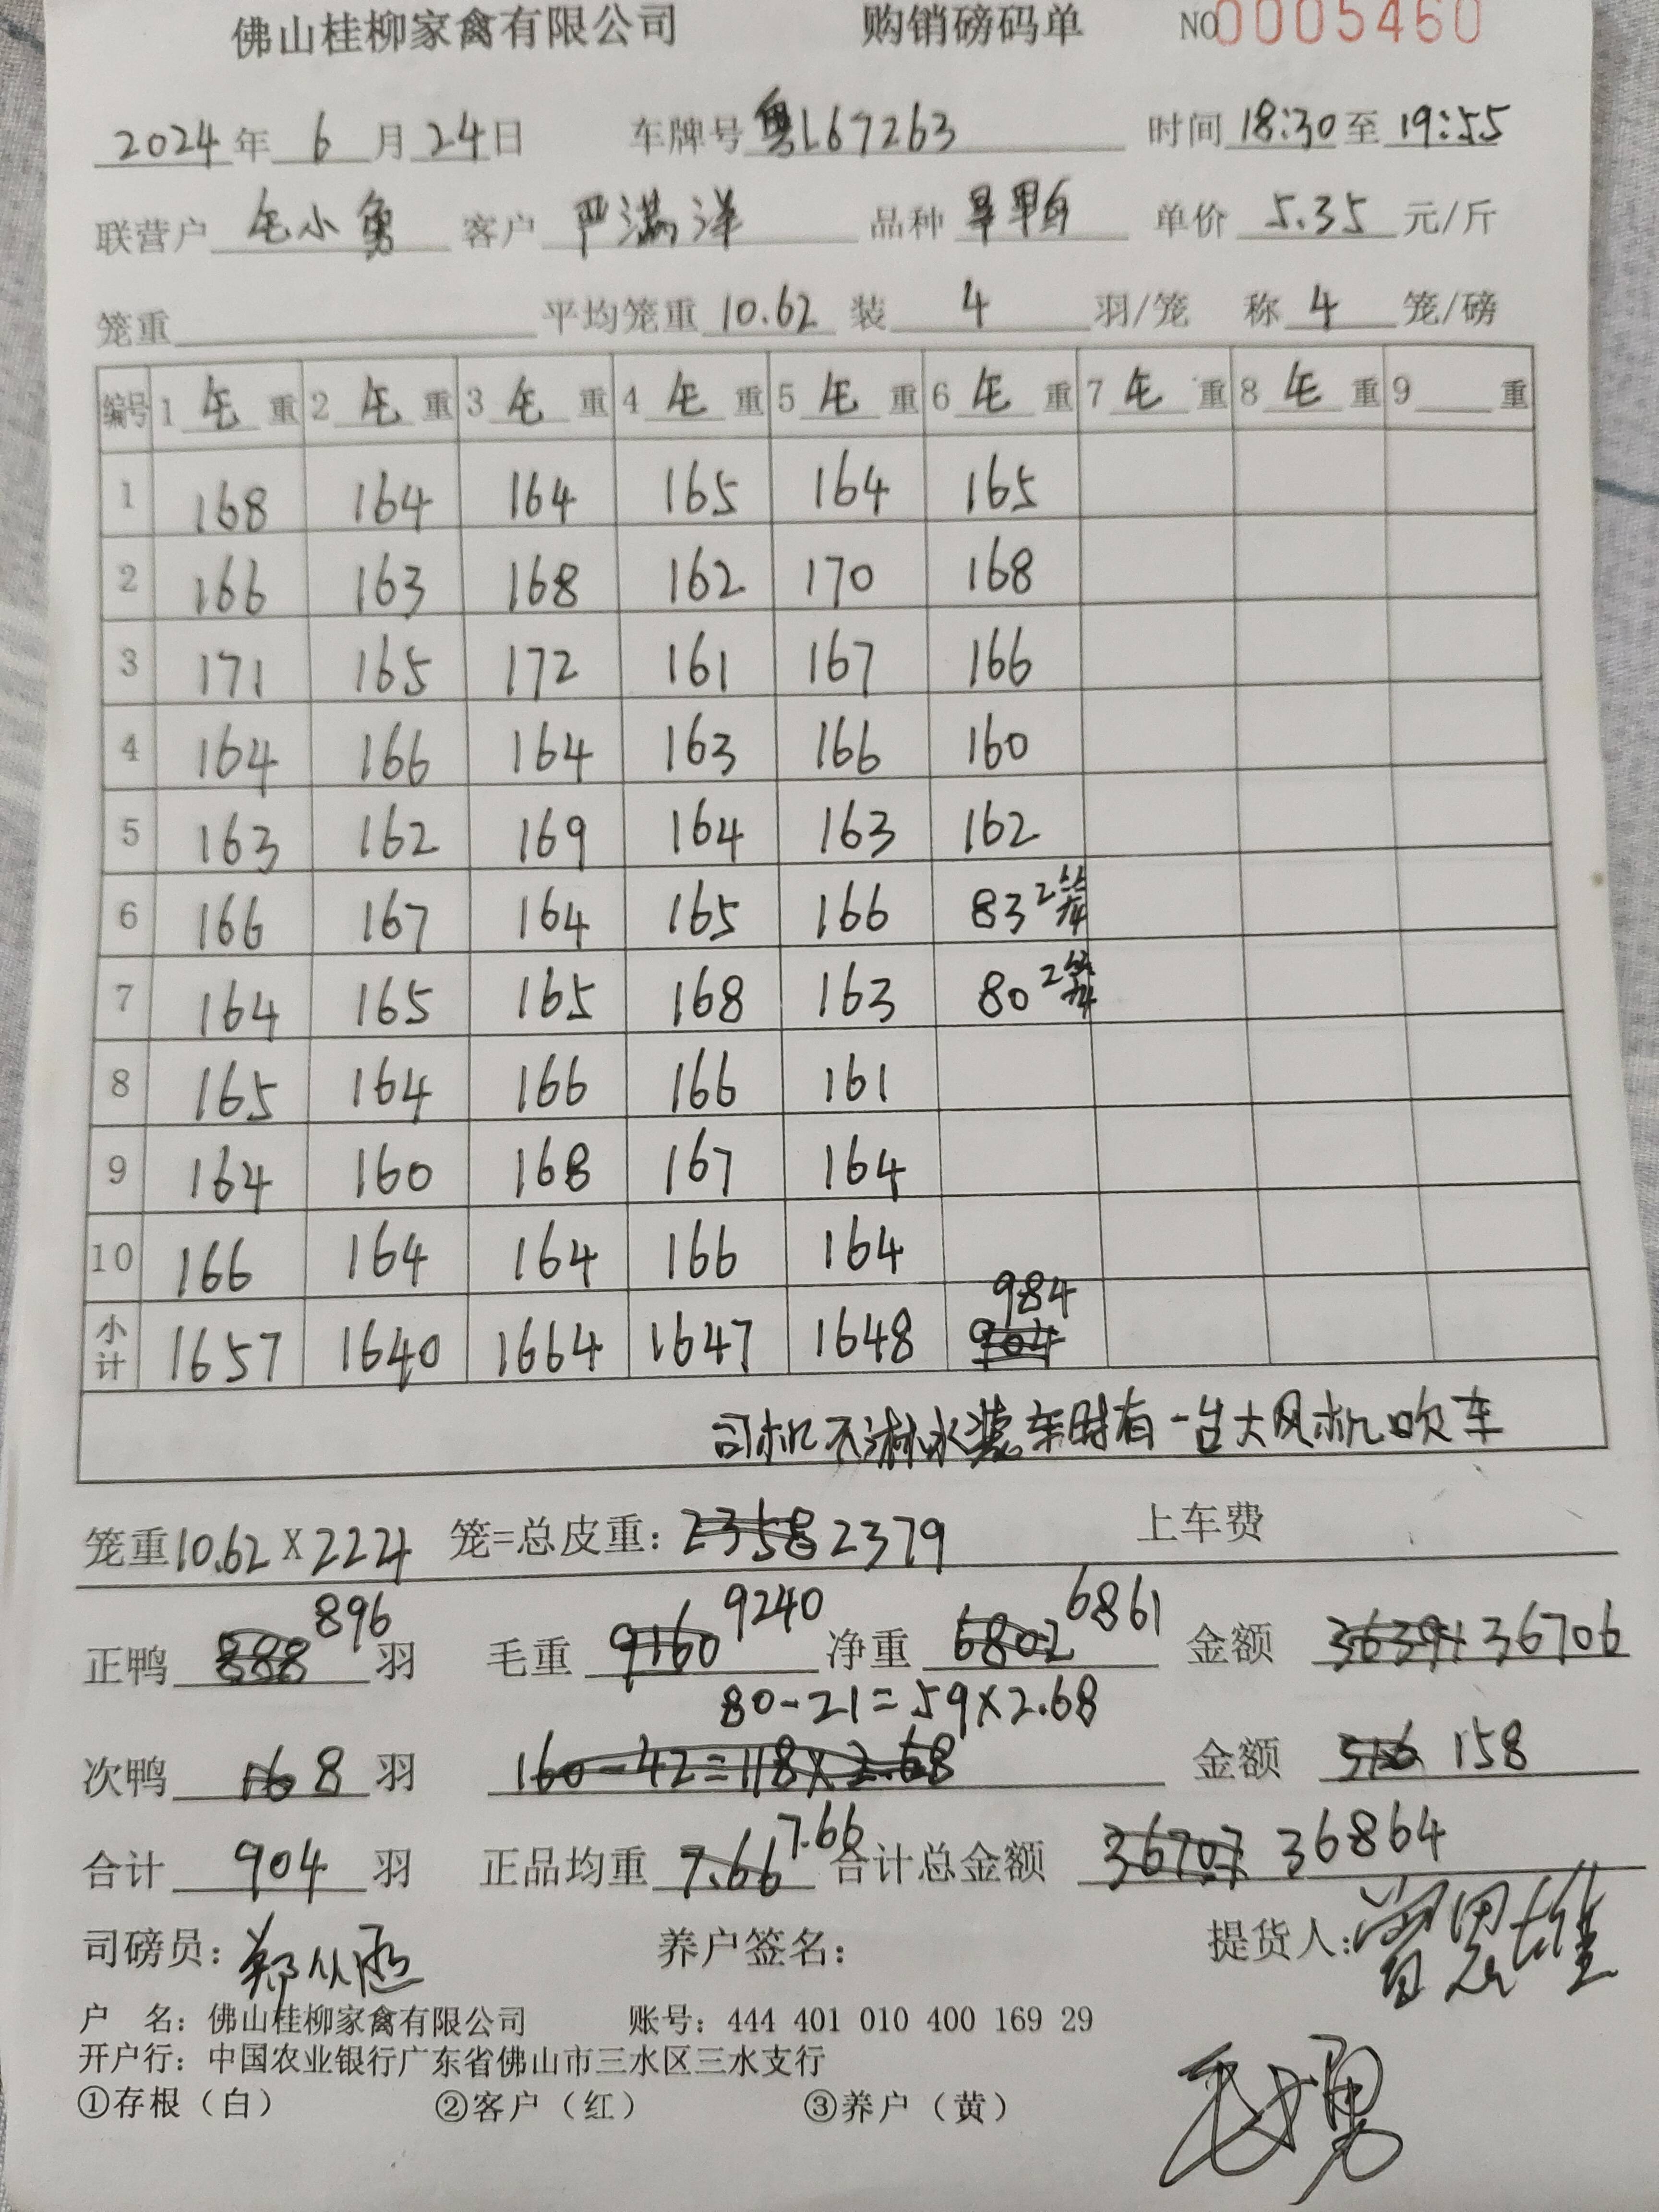 佛山桂柳家禽有限公司 购销磅码单 NO 0005460
2024年 6月 24日 车牌号 粤L67263 时间 18:30 至 19:55
联营户 毛小勇 客户 严满洋 品种 旱鸭 单价 5.35 元/斤
笼重 平均笼重 10.62 装 4 羽/笼 称 4 笼/磅
编号 1 毛 重 2 毛 重 3 毛 重 4 毛 重 5 毛 重 6 毛 重 7 毛 重 8 毛 重 9 重
1 168 164 164 165 164 165
2 166 163 168 162 170 168
3 171 165 172 161 167 166
4 164 166 164 163 166 160
5 163 162 169 164 163 162
6 166 167 164 165 166 83 2笼
7 164 165 165 168 163 80 2笼
8 165 164 166 166 161
9 164 160 168 167 164
10 166 164 164 166 164
小计 1657 1640 1664 1647 1648 904 984
司机不淋水装车时有一台大风机吹车
笼重 10.62 X 224 笼=总皮重: 2358 2379 上车费
正鸭 888 896 羽 毛重 9160 9240 净重 6802 6861 金额 36391 36706
80-21=59×2.68
次鸭 16 8 羽 160-42=118×2.68 金额 316 158
合计 904 羽 正品均重 7.66 7.66 合计总金额 36707 36864
司磅员: 养户签名: 提货人:
户 名: 佛山桂柳家禽有限公司 账号: 444 401 010 400 169 29
开户行: 中国农业银行广东省佛山市三水区三水支行
①存根（白） ②客户（红） ③养户（黄）